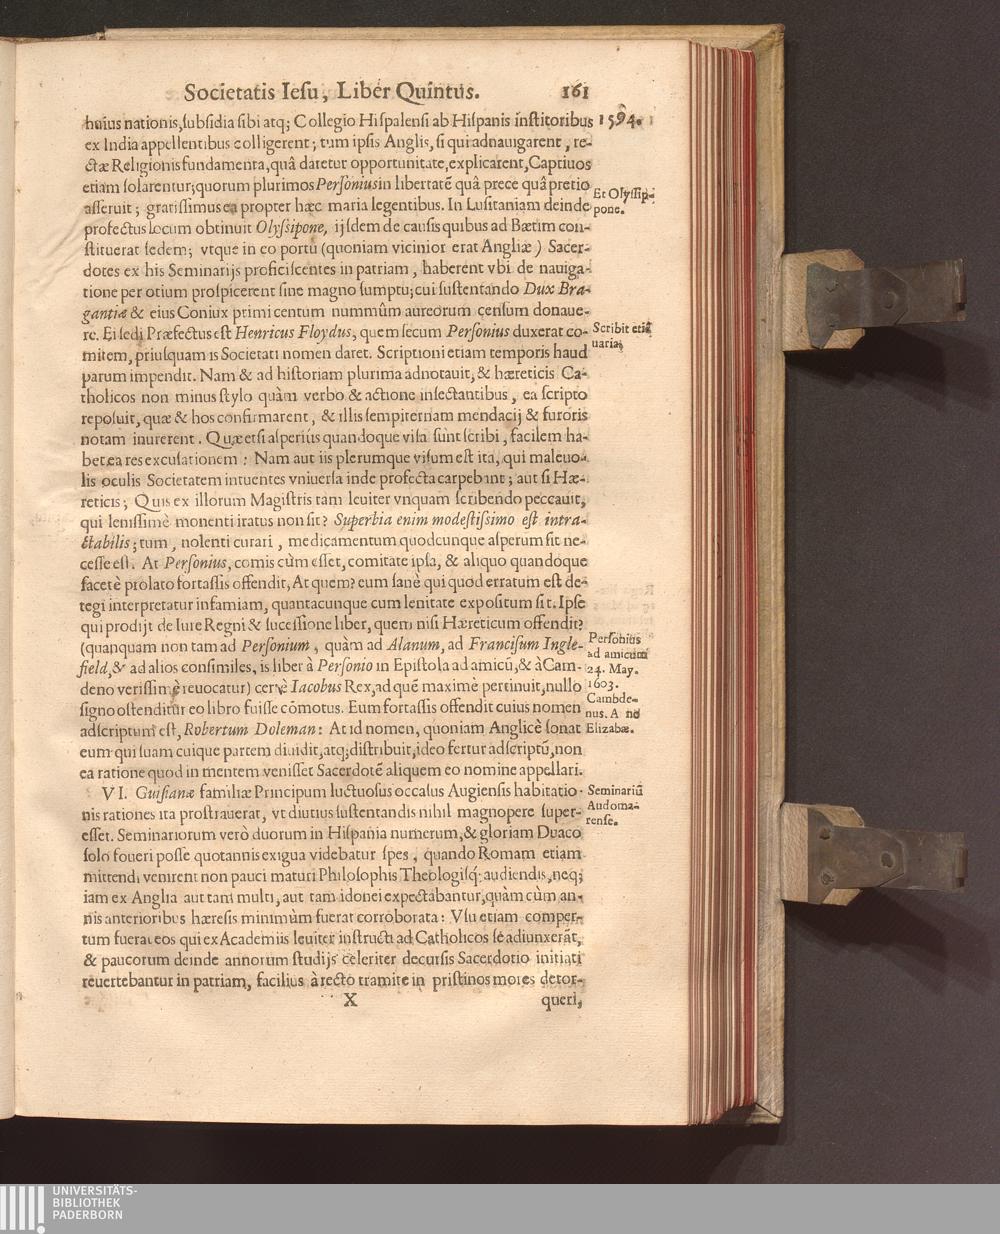 Societatis Iesu, Liber Quintus. 161
huius nationis, subsidia sibi atq; Collegio Hispalensi ab Hispanis institoribus 1594.
ex India appellentibus colligerent; tum ipsis Anglis, si qui adnauigarent, re-
ctæ Religionis fundamenta, quâ daretur opportunitate, explicarent, Captiuos
etiam solarentur; quorum plurimos Personius in libertatē quâ prece quâ pretio
asseruit; gratissimus ea propter hæc maria legentibus. In Lusitaniam deinde
Et Olyssip-
pone.
profectus locum obtinuit Olyssipone, ijsdem de causis quibus ad Bætim con-
stituerat sedem; vtque in eo portu (quoniam vicinior erat Angliæ) Sacer-
dotes ex his Seminarijs proficiscentes in patriam, haberent vbi de nauiga-
tione per otium prospicerent sine magno sumptu; cui sustentando Dux Bra-
gantiæ & eius Coniux primi centum nummûm aureorum censum donaue-
re. Ei sedi Præfectus est Henricus Floydus, quem secum Personius duxerat co-
Scribit etiā
uaria;
mitem, priusquam is Societati nomen daret. Scriptioni etiam temporis haud
parum impendit. Nam & ad historiam plurima adnotauit, & hæreticis Ca-
tholicos non minus stylo quàm verbo & actione insectantibus, ea scripto
reposuit, quæ & hos confirmarent, & illis sempiternam mendacij & furoris
notam inurerent. Quæ etsi asperiùs quandoque visa sunt scribi, facilem ha-
bet ea res excusationem: Nam aut iis plerumque visum est ita, qui maleuo-
lis oculis Societatem intuentes vniuersa inde profecta carpebant; aut si Hæ-
reticis; Quis ex illorum Magistris tam leuiter vnquam scribendo peccauit,
qui lenissimè monenti iratus non sit? Superbia enim modestissimo est intra-
ctabilis; tum, nolenti curari, medicamentum quodcunque asperum sit ne-
cesse est. At Personius, comis cùm esset, comitate ipsa, & aliquo quandoque
facetè prolato fortassis offendit, At quem? eum sanè qui quod erratum est de-
tegi interpretatur infamiam, quantacunque cum lenitate expositum sit. Ipse
qui prodijt de Iure Regni & sucessione liber, quem nisi Hæreticum offendit?
(quanquam non tam ad Personium, quàm ad Alanum, ad Francisum Ingle-
field, & ad alios consimiles, is liber à Personio in Epistola ad amicū, & à Cam-
deno verissimè reuocatur) certè Iacobus Rex, ad quē maximè pertinuit, nullo
signo ostenditur eo libro fuisse cōmotus. Eum fortassis offendit cuius nomen
adscriptum est, Robertum Doleman: At id nomen, quoniam Anglicè sonat
Personius
ad amicum
24. May.
1603.
Cambde-
nus. A no
Elizabæ.
eum qui suam cuique partem diuidit, atq; distribuit, ideo fertur adscriptū, non
ea ratione quod in mentem venisset Sacerdotē aliquem eo nomine appellari.
VI. Guisianæ familiæ Principum luctuosus occasus Augiensis habitatio-
Seminariū
Audoma-
rense.
nis rationes ita prostrauerat, vt diutius sustentandis nihil magnopere super-
esset. Seminariorum verò duorum in Hispania numerum, & gloriam Duaco
solo foueri posse quotannis exigua videbatur spes, quando Romam etiam
mittendi venirent non pauci maturi Philosophis Theologisq; audiendis, neq;
iam ex Anglia aut tam multi, aut tam idonei expectabantur, quàm cùm an-
nis anterioribus hæresis minimùm fuerat corroborata: Vsu etiam comper-
tum fuerat eos qui ex Academiis leuiter instructi ad Catholicos se adiunxerāt,
& paucorum deinde annorum studijs celeriter decursis Sacerdotio initiati
reuertebantur in patriam, facilius à recto tramite in pristinos mores detor-
X queri,
UNIVERSITÄTS-
BIBLIOTHEK
PADERBORN